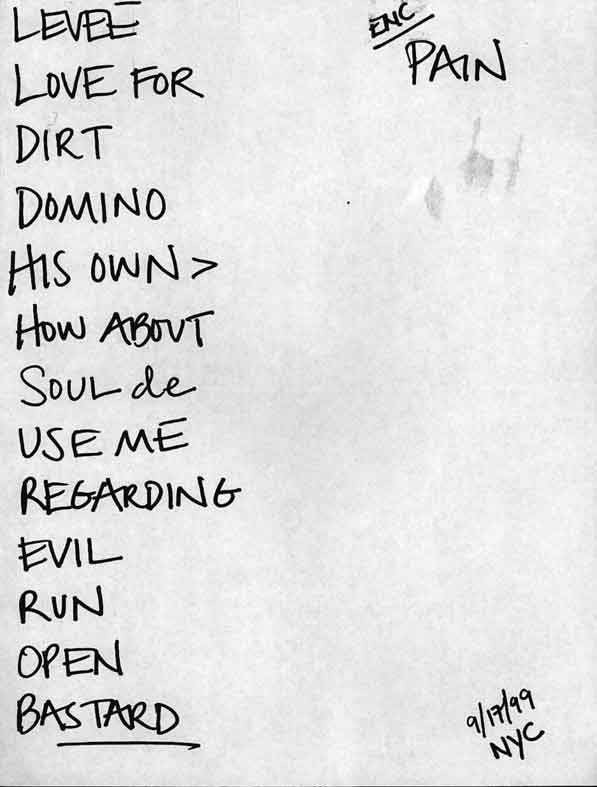 LEVEE
LOVE FOR
DIRT
DOMINO
HIS OWN >
HOW ABOUT
SOUL de
USE ME
REGARDING
EVIL
RUN
OPEN
BASTARD
ENC
PAIN
9/17/99
NYC